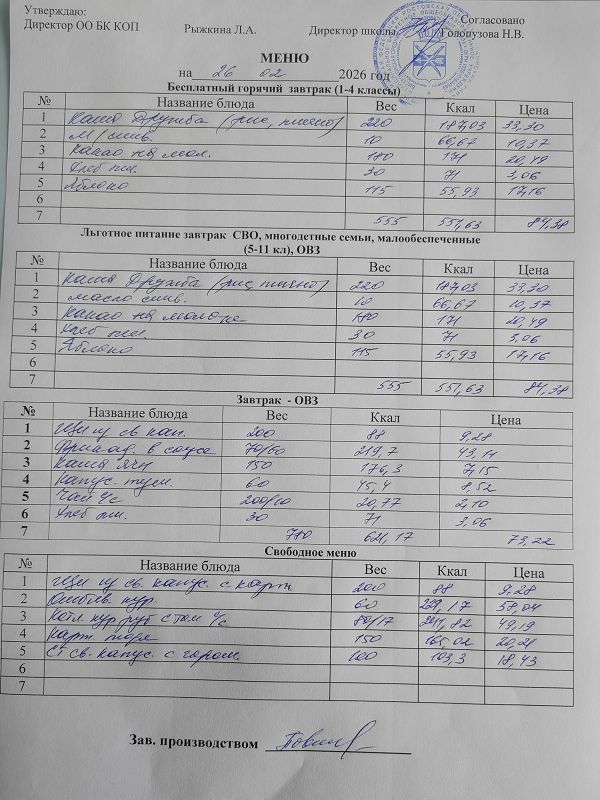 Утверждаю: Согласовано
Директор ОО БК КОП Рыжкина Л.А. Директор школы Голопузова Н.В.
МЕНЮ
на 26 02 2026 год
Бесплатный горячий завтрак (1-4 классы)
№ Название блюда Вес Ккал Цена
1 Каша Дружба (рис, пшено) 220 187,03 33,30
2 м/слив. 10 66,67 10,37
3 Какао на мол. 180 171 20,49
4 Хлеб пш. 30 71 3,06
5 Яблоко 115 55,93 17,16
6
7 555 551,63 84,38
Льготное питание завтрак СВО, многодетные семьи, малообеспеченные
(5-11 кл), ОВЗ
№ Название блюда Вес Ккал Цена
1 Каша Дружба (рис, пшено) 220 187,03 33,30
2 масло слив. 10 66,67 10,37
3 Какао на молоке 180 171 20,49
4 Хлеб пш. 30 71 3,06
5 Яблоко 115 55,93 17,16
6
7 555 551,63 84,38
Завтрак - ОВЗ
№ Название блюда Вес Ккал Цена
1 Щи из св кап. 200 88 9,28
2 Фрикад. в соусе 70/60 219,7 43,11
3 Каша ячн 150 176,3 7,15
4 Капус. туш. 60 45,4 8,52
5 Чай с/с 200/10 20,77 2,10
6 Хлеб пш. 30 71 3,06
7 780 621,17 73,22
Свободное меню
№ Название блюда Вес Ккал Цена
1 Щи из св. капус. с карт 200 88 9,28
2 кур. 60 58,04
3 Котл кур руб с том с/с 80/17 241,82 49,19
4 Карт. пюре 150 165,02 20,21
5 Ст св. капус. с горош. 100 103,3 18,43
6
7
Зав. производством